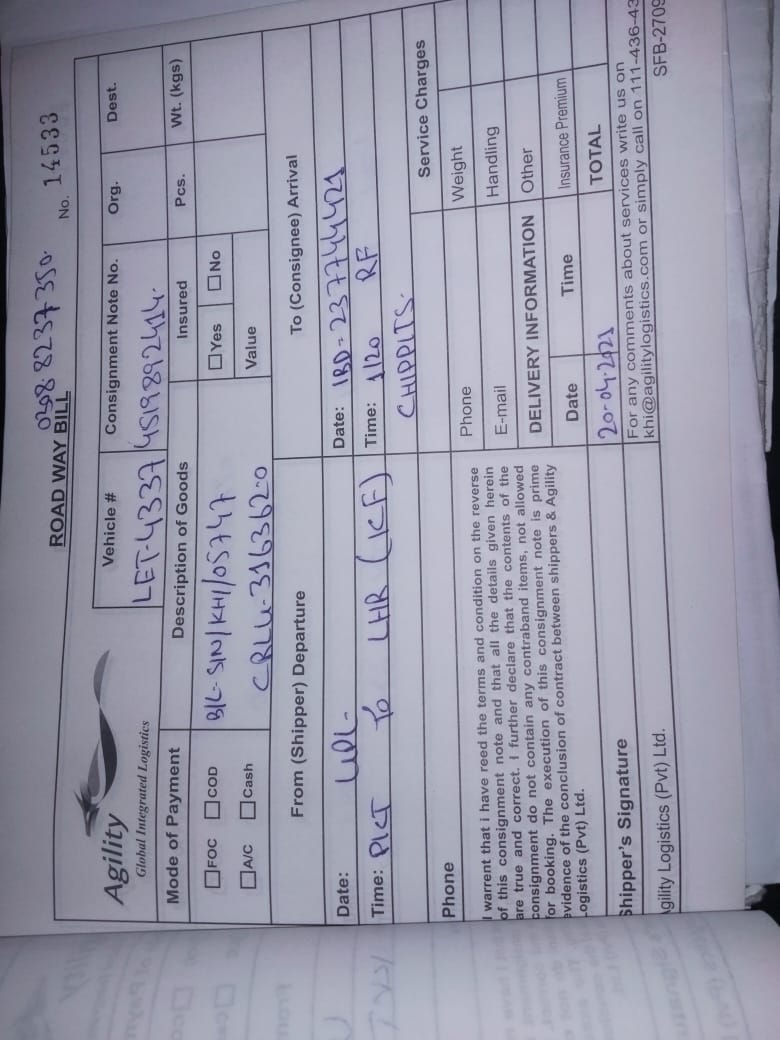 0308-8237350.
ROAD WAY BILL
No. 14533
Agility
Global Integrated Logistics
Vehicle #
Consignment Note No.
Org.
Dest.
LET-4337
4519892414.
Mode of Payment
Description of Goods
Insured
Pcs.
Wt. (kgs)
FOC COD
A/C Cash
B/L- SIN/KHI/05747
CRLU-316362-0
Yes No
Value
From (Shipper) Departure
To (Consignee) Arrival
Date: UPL-
Date: IBD=237744421
Time: PICT To LHR (KF)
Time: 1/20 RF
CHIPPITS.
Phone
Service Charges
I warrent that i have reed the terms and condition on the reverse
of this consignment note and that all the details given herein
are true and correct. I further declare that the contents of the
consignment do not contain any contraband items, not allowed
for booking. The execution of this consignment note is prime
evidence of the conclusion of contract between shippers & Agility
Logistics (Pvt) Ltd.
Phone
Weight
E-mail
Handling
DELIVERY INFORMATION
Other
Date
Time
Insurance Premium
20-04-2021
TOTAL
Shipper's Signature
For any comments about services write us on
khi@agilitylogistics.com or simply call on 111-436-43
Agility Logistics (Pvt) Ltd.
SFB-2709